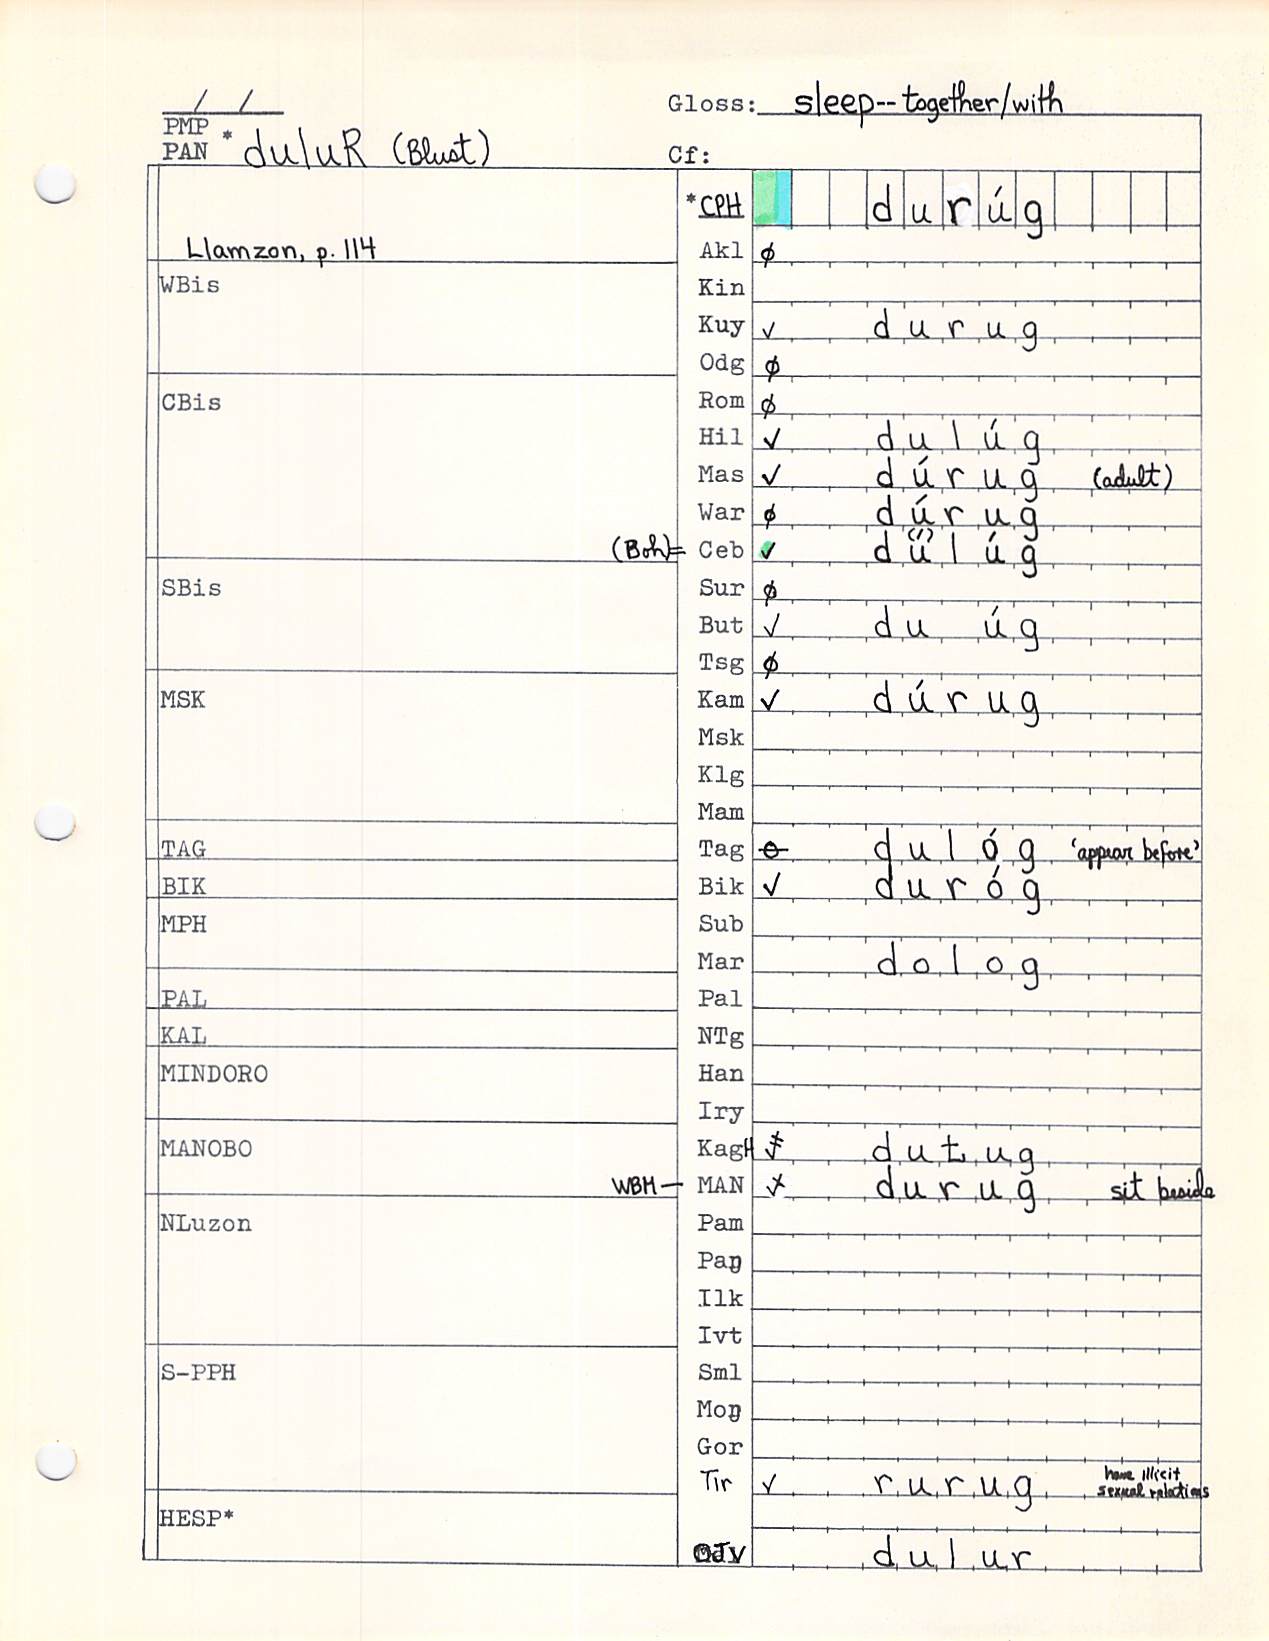 / / Gloss: sleep--together/with
PMP
PAN *duluR (Blust) Cf:
*CPH durúg
Llamzon, p. 114
Akl ø
WBis
Kin
Kuy ✓ durug
Odg ø
CBis
Rom ø
Hil ✓ dulúg
Mas ✓ dúrug (adult)
War ø dúrug
(Boh)= Ceb ✓ dú(')lúg
SBis
Sur ø
But ✓ du úg
Tsg ø
MSK
Kam ✓ dúrug
Msk
Klg
Mam
TAG
Tag dulóg 'appear before'
BIK
Bik ✓ duróg
MPH
Sub
Mar dolog
PAL
Pal
KAL
NTg
MINDORO
Han
Iry
MANOBO
KagH dutug
WBM — MAN durug sit beside
NLuzon
Pam
Paŋ
Ilk
Ivt
S-PPH
Sml
Moŋ
Gor
Tir ✓ rurug have illicit sexual relations
HESP*
OJV dulur